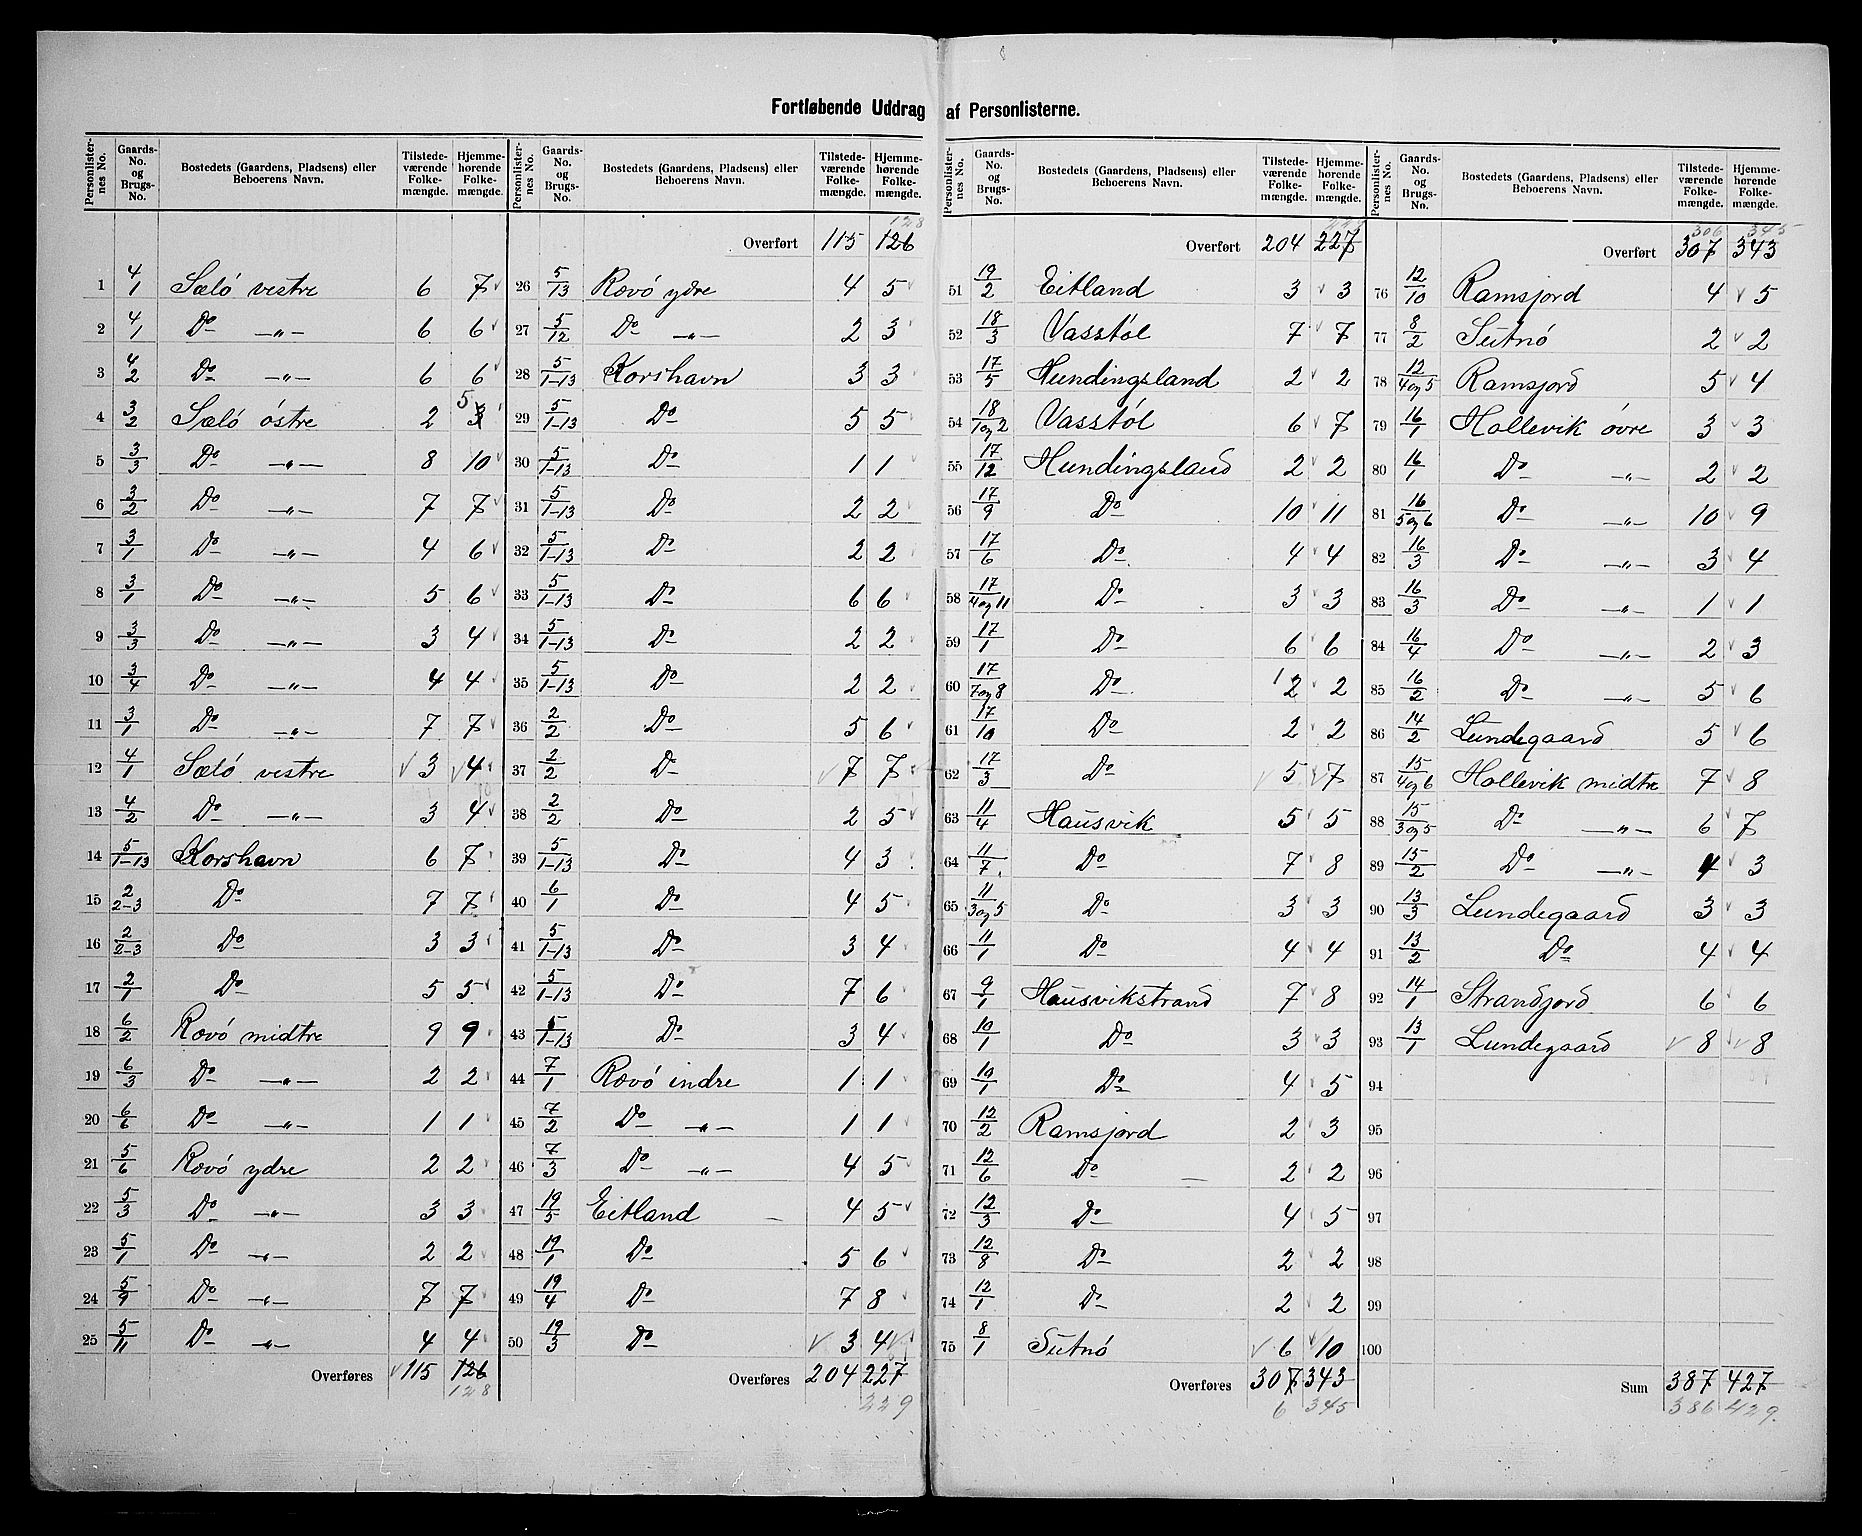 Fortløbende Uddrag af Personlisterne.
Personlister-nes No. | Gaards-No. og Brugs-No. | Bostedets (Gaardens, Pladsens) eller Beboerens Navn. | Tilstede-værende Folke-mængde. | Hjemme-hørende Folke-mængde.
1 4/1 Sælö vestre 6 7
2 4/1 Do —"— 6 6
3 4/2 Do —"— 6 6
4 3/2 Sælö östre 2 5 3
5 3/3 Do —"— 8 10
6 3/2 Do —"— 7 7
7 3/1 Do —"— 4 6
8 3/1 Do —"— 5 6
9 3/3 Do —"— 3 4
10 3/4 Do —"— 4 4
11 3/1 Do —"— 7 7
12 4/1 Sælö vestre 3 4
13 4/2 Do —"— 3 4
14 5/1-13 Korshavn 6 7
15 2/2-3 Do 7 7
16 2/2-3 Do 3 3
17 2/1 Do 5 5
18 6/2 Rævö midtre 9 9
19 6/3 Do —"— 2 2
20 6/6 Do —"— 1 1
21 5/6 Rævö ydre 2 2
22 5/3 Do —"— 3 3
23 5/1 Do —"— 2 2
24 5/9 Do —"— 7 7
25 5/11 Do —"— 4 4
Overføres 115 126
128
Personlister-nes No. | Gaards-No. og Brugs-No. | Bostedets (Gaardens, Pladsens) eller Beboerens Navn. | Tilstede-værende Folke-mængde. | Hjemme-hørende Folke-mængde.
128
Overført 115 126
26 5/13 Rævö ydre 4 5
27 5/12 Do —"— 2 3
28 5/1-13 Korshavn 3 3
29 5/1-13 Do 5 5
30 5/1-13 Do 1 1
31 5/1-13 Do 2 2
32 5/1-13 Do 2 2
33 5/1-13 Do 6 6
34 5/1-13 Do 2 2
35 5/1-13 Do 2 2
36 2/2 Do 5 6
37 2/2 Do 7 7
38 2/2 Do 2 5
39 5/1-13 Do 4 3
40 6/1 Do 4 5
41 5/1-13 Do 3 4
42 5/1-13 Do 7 6
43 5/1-13 Do 3 4
44 7/1 Rævö indre 1 1
45 7/2 Do —"— 1 1
46 7/3 Do —"— 4 5
47 19/5 Eitland 4 5
48 19/1 Do 5 6
49 19/4 Do 7 8
50 19/3 Do 3 4
Overføres 204 227
229
Personlister-nes No. | Gaards-No. og Brugs-No. | Bostedets (Gaardens, Pladsens) eller Beboerens Navn. | Tilstede-værende Folke-mængde. | Hjemme-hørende Folke-mængde.
Overført 204 227
51 19/2 Eitland 3 3
52 18/3 Vasstöl 7 7
53 17/5 Hundingsland 2 2
54 18/1og2 Vasstöl 6 7
55 17/12 Hundingsland 2 2
56 17/9 Do 10 11
57 17/6 Do 4 4
58 17/4og11 Do 3 3
59 17/1 Do 6 6
60 17/7og8 Do 2 2
61 17/10 Do 2 2
62 17/3 Do 5 7
63 11/4 Hausvik 5 5
64 11/7 Do 7 8
65 11/3og5 Do 3 3
66 11/1 Do 4 4
67 9/1 Hausvikstrand 7 8
68 10/1 Do 3 3
69 10/1 Do 4 5
70 12/2 Ramsjord 2 3
71 12/6 Do 2 2
72 12/3 Do 4 5
73 12/8 Do 2 2
74 12/1 Do 2 2
75 8/1 Sutnö 6 10
Overføres 307 343
6 345
Personlister-nes No. | Gaards-No. og Brugs-No. | Bostedets (Gaardens, Pladsens) eller Beboerens Navn. | Tilstede-værende Folke-mængde. | Hjemme-hørende Folke-mængde.
306 345
Overført 307 343
76 12/10 Ramsjord 4 5
77 8/2 Sutnö 2 2
78 12/4og5 Ramsjord 5 4
79 16/1 Hollevik övre 3 3
80 16/1 Do —"— 2 2
81 16/5og6 Do —"— 10 9
82 16/3 Do —"— 3 4
83 16/3 Do —"— 1 1
84 16/4 Do —"— 2 3
85 16/2 Do —"— 5 6
86 14/2 Lundegaard 5 6
87 15/4og6 Hollevik midtre 7 8
88 15/3og5 Do —"— 6 7
89 15/2 Do —"— 4 3
90 13/3 Lundegaard 3 3
91 13/2 Do 4 4
92 14/1 Strandjord 6 6
93 13/1 Lundegaard 8 8
94
95
96
97
98
99
100
Sum 387 427
386 429.